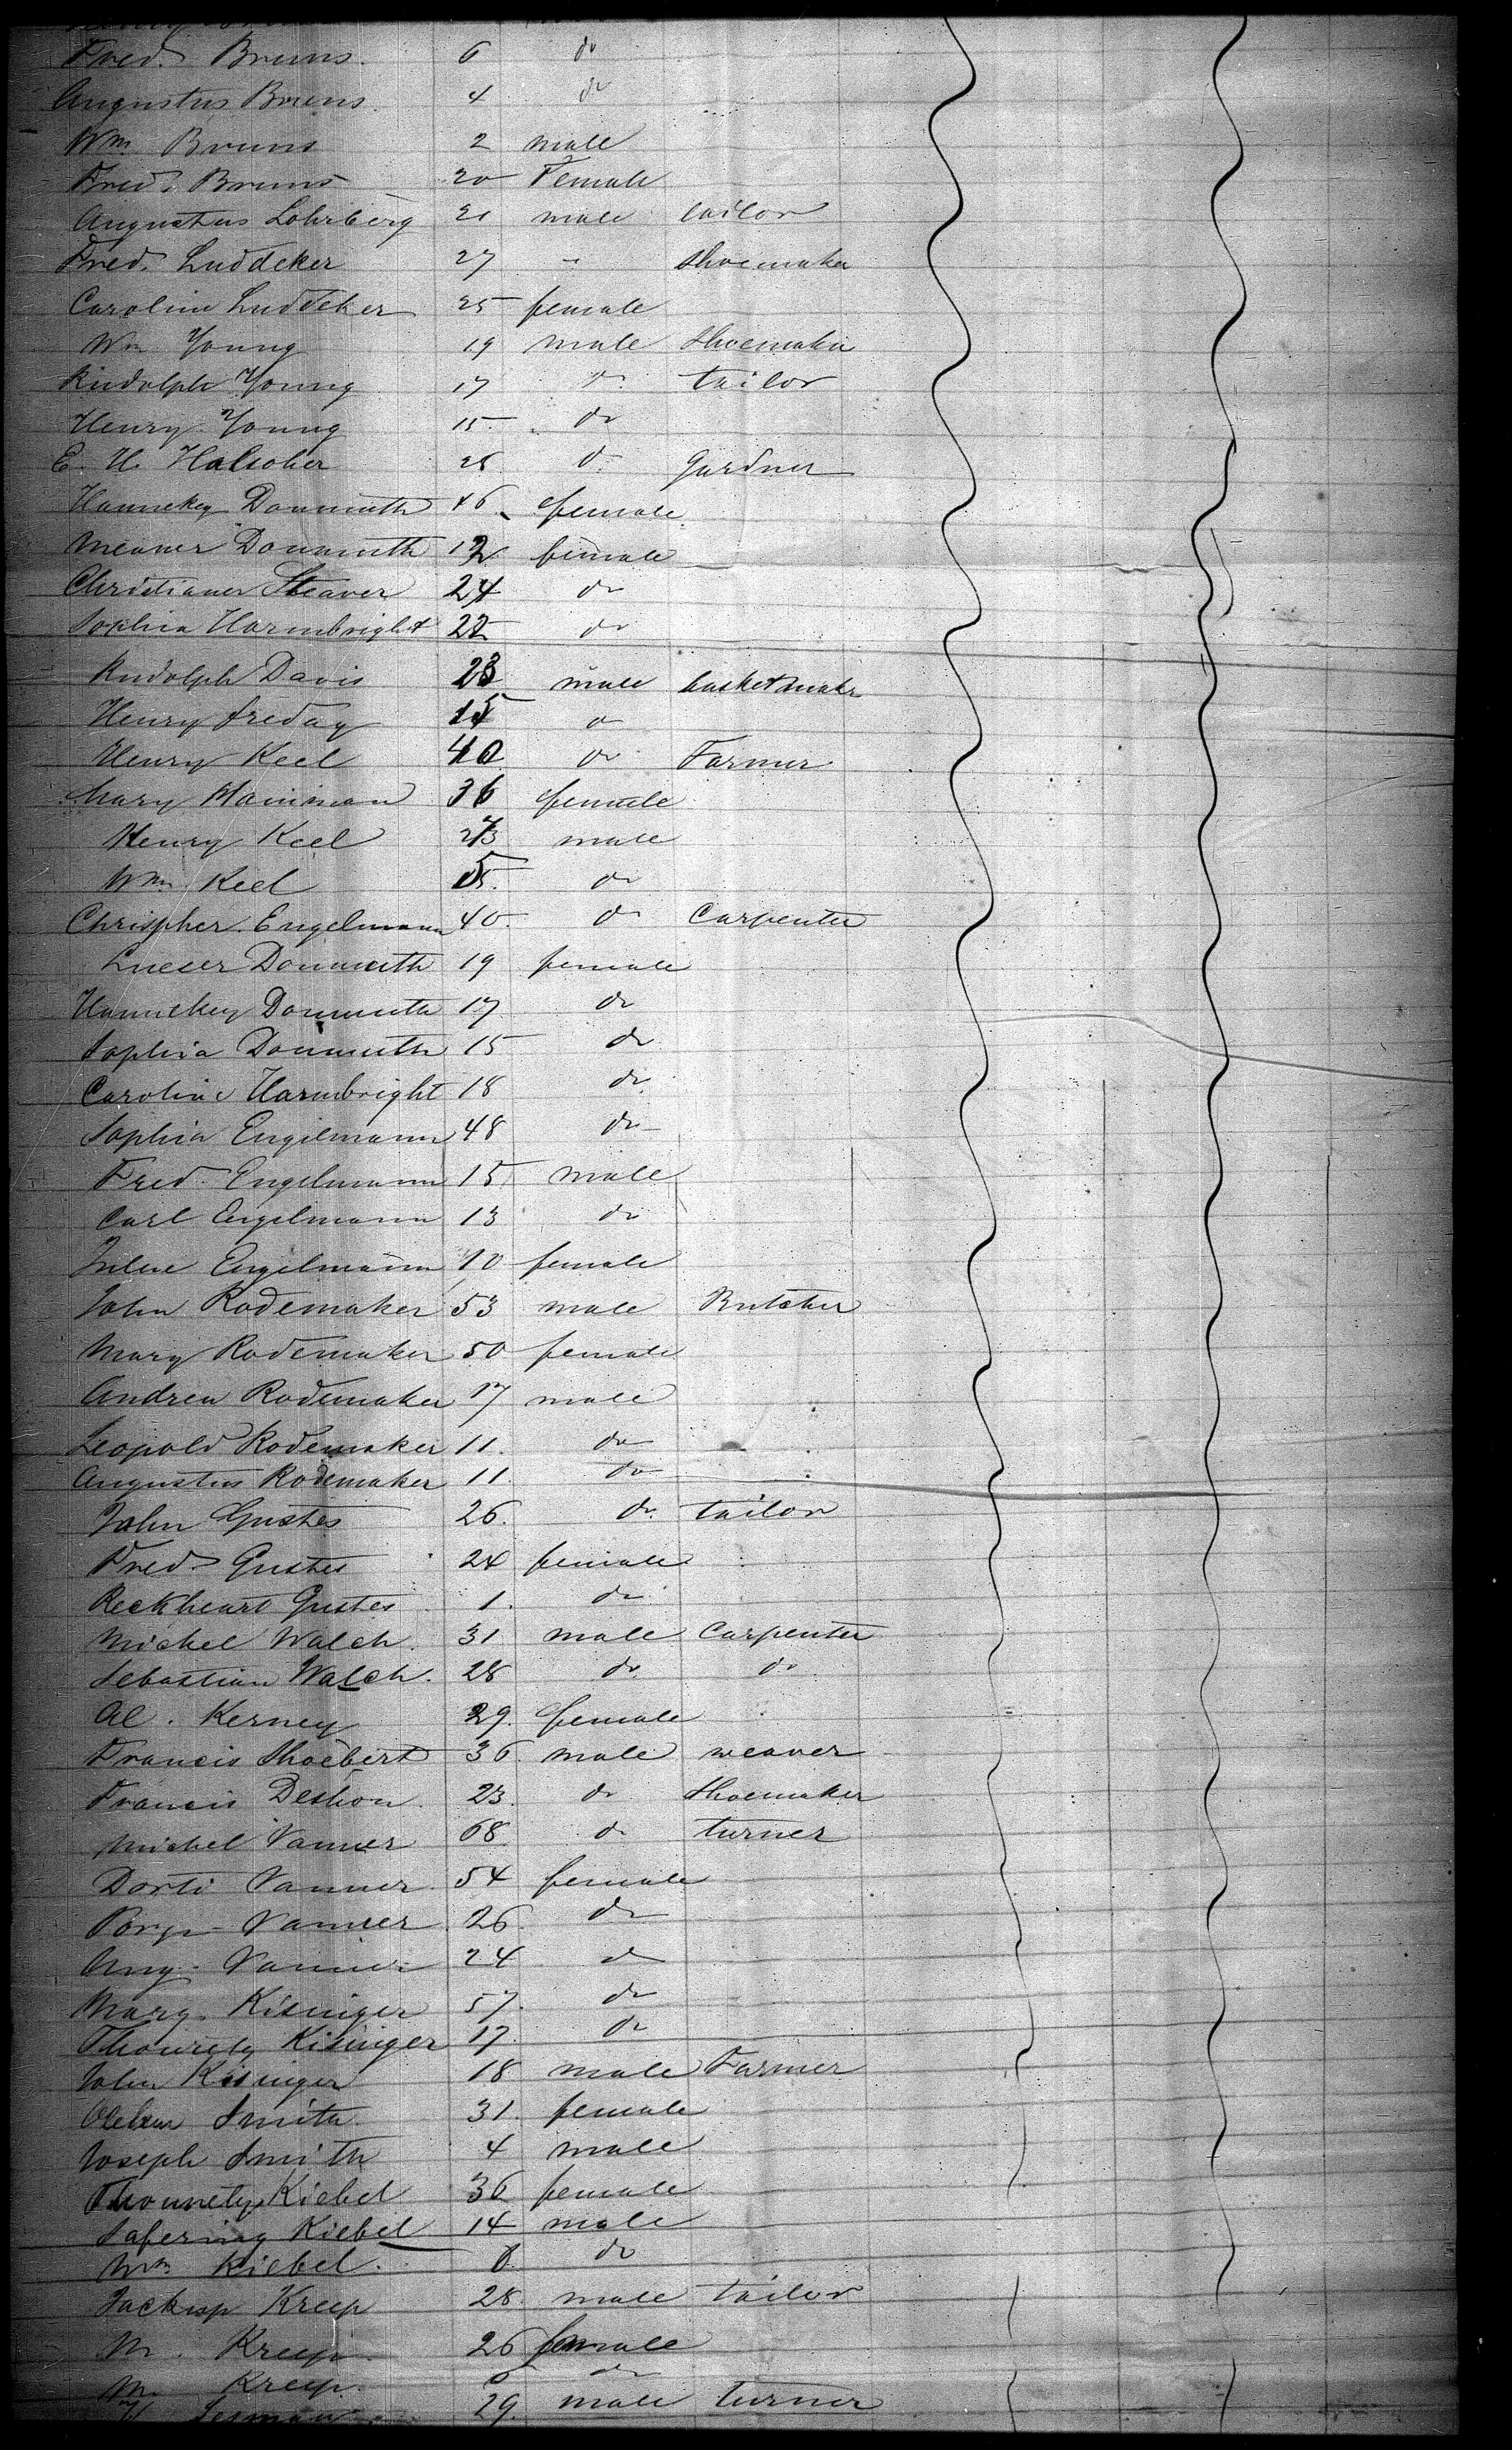 Fred. Bruns. 6 do
Augustus Bruns. 4 do
Wm. Bruns 2 male
Fred. Bruns 20 Female
Augustus Lohrberg 21 male tailor
Fred. Luddeker 27 - Shoemaker
Carolina Luddeker 25 female
Wm Young 19 male Shoemaker
Rudolph Young 17 do tailor
Henry Young 15 do
E. H. 25 do Gardner
Hannekey Donmuth 46 female
Meaner Donmuth 12 female
Christianer Steaver 24 do
Sophia Harmbright 22 do
Rudolph Davis 23 male basketmakr
Henry Freday 15 do
Henry Keel 40 do Farmer
Mary 36 female
Henry Keel male
Wm Keel 5 do
Chrispher. Engelmann 40 do Carpenter
Lueser Donmuth 19 female
Hannekey Donmuth 17 do
Sophia Donmuth 15 do
Caroline Harmbright 18 do
Sophia Engelmann 48 do
Fred. Engelmann 15 male
Carl Engelmann 13 do
Engelmann 10 female
John Rodemaker 53 male Butcher
Mary Rodemaker 50 female
Andrew Rodemaker 17 male
Leopold Rodemaker 11. do
Augustus Rodemaker 11. do
John Gustes 26. do tailor
Fred. Gustes 24 female
Reckheart Gustes 1. do
Michel Walch. 31 male Carpenter
Sebastian Walch. 28 do do
Al. Kerney 29. female
Francis Shoebert 36 male weaver
Francis Deshon 23. do Shoemaker
Michel Vanner 68 do turner
Dorti Vanner 54 female
Vanner 26 do
Ang. Vanner 24 do
Mary Kisinger 57. do
Kisinger 17. do
John Kisinger 18 male Farmer
Smith 31. female
Joseph Smith 4 male
Kiebel 36 female
Kiebel 14 male
Wm Kiebel. do
Kreep 28. male tailor
M. Kreep. 26 female
M. Kreep. do
29. male turner